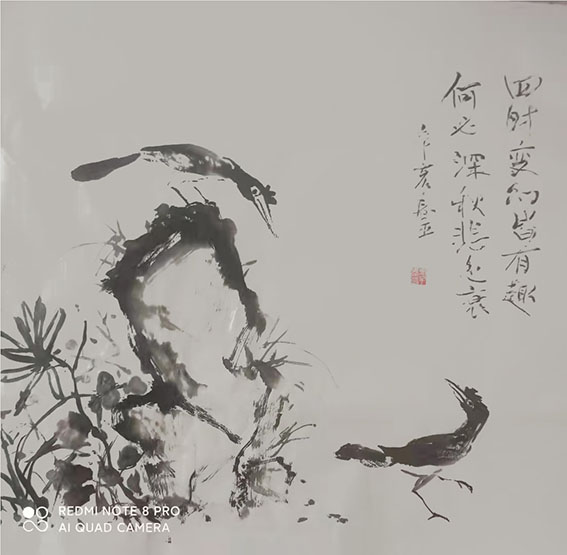 四时变幻皆有趣
何必深秋悲色衰
REDMI NOTE 8 PRO
AI QUAD CAMERA